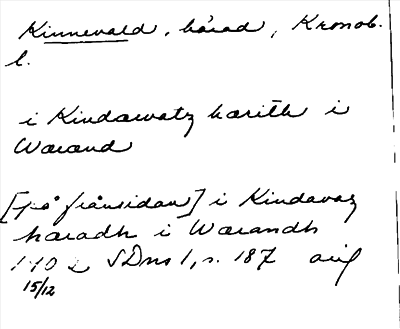 Kinnevald, härad, Kronob.
l.
i Kindawatz hærith i
Warand
[på frånsidan] i Kindavaz
haradh i Warandh
1402 SDns 1, s. 187 orig
15/12